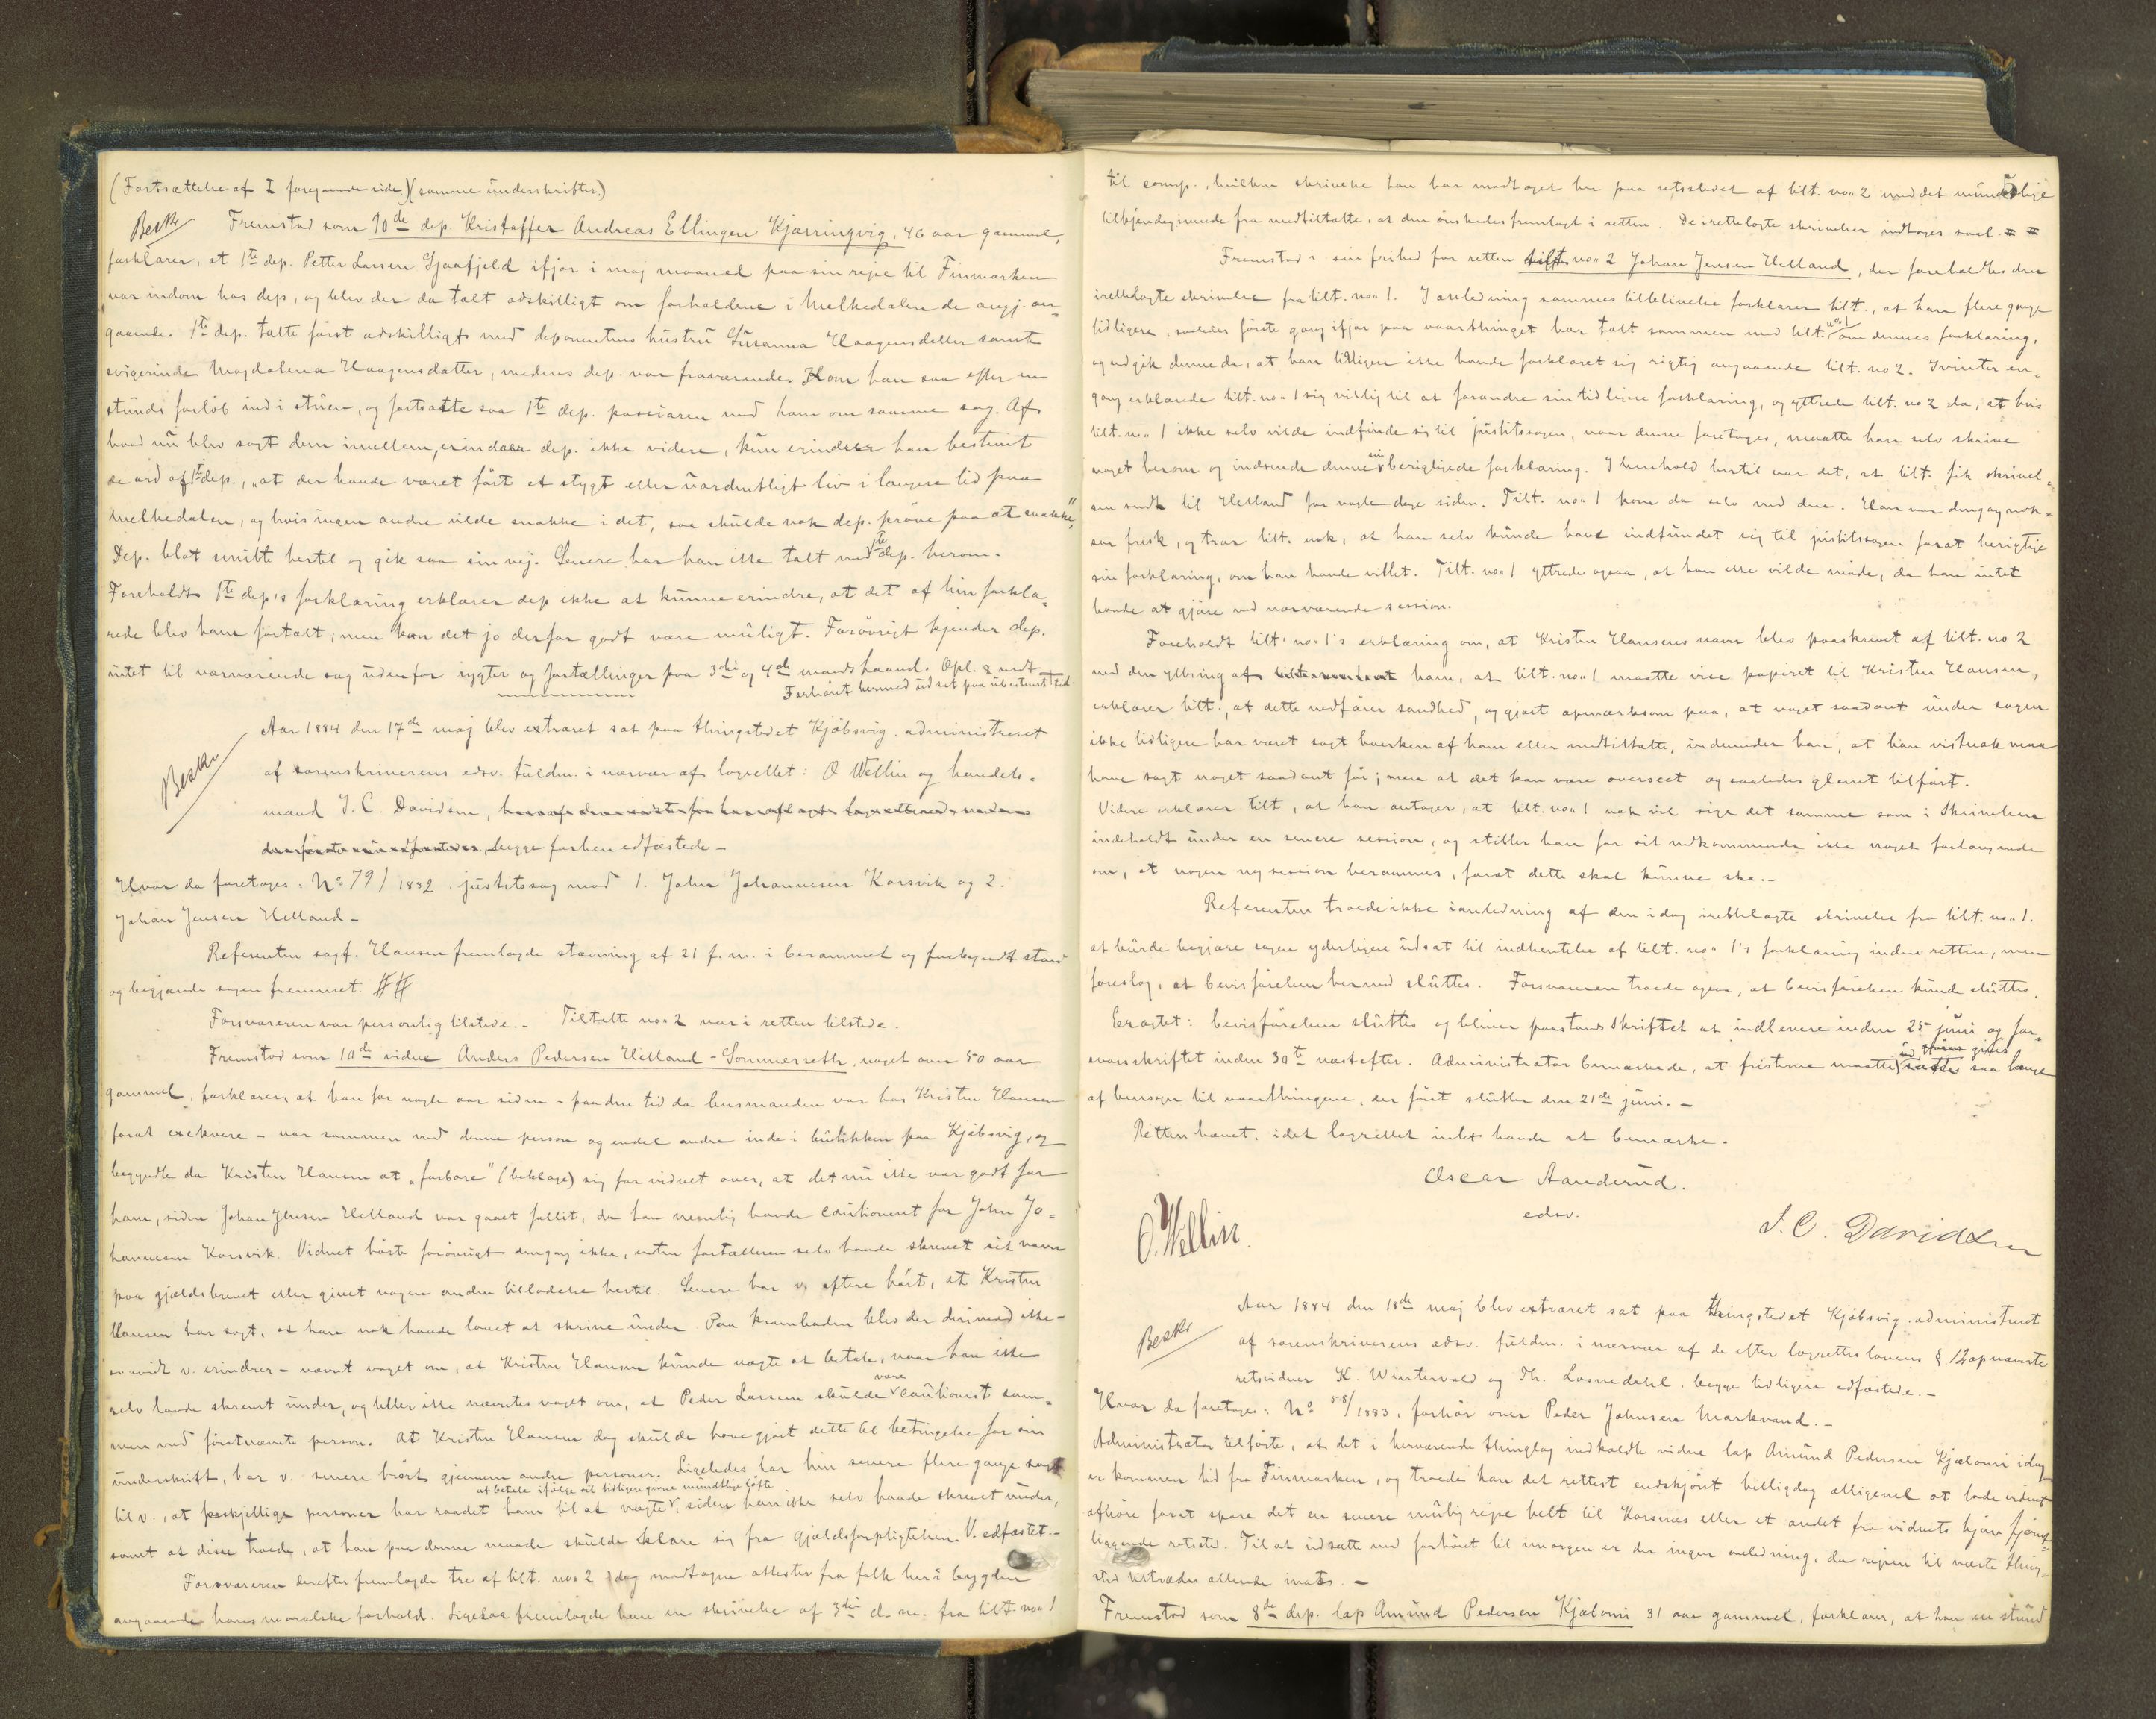 (Fortsættelse af I foregaaende side) (samme underskrifter.)
Beskr Fremstod som 10de dep. Kristoffer Andreas Ellingsen Kjærringvig, 46 aar gammel,
forklarer, at 1te dep. Petter Larsen Gjaafjeld ifjor i maj maaned paa sin rejse til Finmarken
var indom hos dep., og blev der da talt adskilligt om forholdene i Melkedalen de angj. an-
gaaende. 1te dep. talte först adskilligt med deponentens hustru Susanna Haagensdatter samt
svigerinde Magdalena Haagensdatter, medens dep. var fraværende. Kom han saa efter en
stunds forløb ind i stuen, og fortsatte saa 1te dep. passiaren med ham om samme sag. Af
hvad nu blev sagt dem imellem, erindrer dep. ikke videre, kun erindrer han bestemt
de ord af 1te dep., „at der havde været fört et stygt eller uordentligt liv i længere tid paa
Melkedalen, og hvis ingen andre vilde snakke i det, saa skulde nok dep. pröve paa at snakke."
Dep. blot smilte hertil og gik saa sin vej. Senere har han ikke talt med 1te dep. herom.
Foreholdt 1te dep's forklaring erklærer dep ikke at kunne erindre, at det af hin forkla-
rede blev ham fortalt, men kan det jo derfor godt være muligt. Forövrigt kjender dep.
intet til nærværende sag udenfor rygter og fortællinger paa 3die og 4de mands haand. Opl. & vedt.
Forhöret hermed udsat paa ubestemt tid.
Aar 1884 den 17de maj blev extraret sat paa thingstedet Kjöbsvig, administreret
Beskr
af sorenskriverens edsv. fuldm. i nærvær af lagrettet: O Wellin og handels-
mand J. C. Davidsen,
begge forhen edfæstede –
Hvor da foretoges: No 79/1882. justitssag mod 1. John Johannesen Korsvik og 2.
Johan Jensen Helland –
Referenten sagf. Hansen fremlagde stævning af 21 f. m. i berammet og forkyndt stand
og begjærede sagen fremmet. ##
Forsvareren var personlig tilstede. – Tiltalte no 2 var i retten tilstede.
Fremstod som 10de vidne Anders Pedersen Helland – Sommerseth, noget over 50 aar
gammel, forklarer, at han for nogle aar siden – paa den tid da lensmanden var hos Kristen Hansen
forat exekvere – var sammen med denne person og endel andre inde i butikken paa Kjöbsvig, og
begyndte da Kristen Hansen at „forbare" (beklage) sig for vidnet over, at det nu ikke var godt for
ham, siden Johan Jensen Helland var gaaet fallit, da han nemlig havde cautioneret for John Jo-
hannesen Korsvik. Vidnet hörte forövrigt dengang ikke, enten fortælleren selv havde skrevet sit navn
paa gjældsbrevet eller givet nogen anden tilladelse hertil. Senere har v. oftere hört, at Kristen
Hansen har sagt, at han nok havde lovet at skrive under. Paa kramboden blev der derimod ikke –
so vidt v. erindrer – nævnt noget om, at Kristen Hansen kunde nægte at betale, naar han ikke
selv havde skrevet under, og heller ikke nævntes noget om, at Peder Larsen skulde være cautionist sam-
men med förstnævnte person. At Kristen Hansen dog skulde have gjort dette til betingelse for sin
underskrift, har v. senere hört gjennem andre personer. Ligeledes har hin senere flere gange sagt
til v., at forskjellige personer har raadet ham til at nægte at betale ifölge sit tidligere givne mundtlige löfte, siden han ikke selv havde skrevet under,
samt at disse troede, at han paa denne maade skulde klare sig fra gjældsforpligtelsen. V. edfæstet. –
Forsvareren derefter fremlagde tre af tilt. no 2 idag modtagne attester fra folk her i bygden
angaaende hans moralske forhold. Ligesaa fremlagde han en skrivelse af 3die d. m. fra tilt. no 1
til comp., hvilken skrivelse han har modtaget her paa retsstedet af tilt. no 2 med det mundtlige
5
tilkjendegivende fra medtiltalte, at den önskedes fremlagt i retten. De irettelagte skrivelser indtages saal. # #
Fremstod i sin frihed for retten tilt. no 2 Johan Jensen Helland, der foreholdtes den
irettelagte skrivelse fra tilt. no 1. I anledning sammes tilblivelse forklarer tilt., at han flere gange
tidligere, saaledes förste gang ifjor paa vaarthinget har talt sammen med tilt. no 1 om dennes forklaring,
og udgik denne da, at han tidligere ikke havde forklaret sig rigtig angaaende tilt. no 2. Ivinter en-
gang erklærede tilt. no 1 sig villig til at forandre sin tidligere forklaring, og yttrede tilt. no 2 da, at hvis
tilt. no 1 ikke selv vilde indfinde sig til justitssagen, naar denne foretoges, maatte han selv skrive
noget herom og indsende denne sin berigtigede forklaring. I henhold hertil var det, at tilt. fik skrivel-
sen sendt til Helland for nogle dage siden. Tilt. no 1 kom da selv med den. Han var dengang nok-
saa frisk, og tror tilt. nok, at han selv kunde have indfundet sig til justitssagen forat berigtige
sin forklaring, om han havde villet. Tilt. no 1 yttrede ogsaa, at han ikke vilde möde, da han intet
havde at gjöre ved nærværende session.
Foreholdt tilt. no 1's erklæring om, at Kristen Hansens navn blev paaskrevet af tilt. no 2
med den yttring af ham, at tilt. no 1 maatte vise papiret til Kristen Hansen,
erklærer tilt., at dette medförer sandhed, og gjort opmærksom paa, at noget saadant under sagen
ikke tidligere har været sagt hverken af ham eller medtiltalte, indvender han, at han vistnok maa
have sagt noget saadant för; men at det kan være overseet og saaledes glemt tilfört.
Videre erklærer tilt, at han antager, at tilt. no 1 nok vil sige det samme som i skrivelsen
indeholdt under en senere session, og stiller han for sit vedkommende ikke noget forlangende
om, at nogen ny session berammes, forat dette skal kunne ske. –
Referenten troede ikke i anledning af den idag irettelagte skrivelse fra tilt. no 1.
at burde begjære sagen yderligere udsat til indhentelse af tilt. no 1's forklaring inden retten, men
foreslog, at bevisförelsen hermed sluttes. Forsvareren troede ogsaa, at bevisförelsen kunde sluttes.
Eragtet: bevisförelsen sluttes og bliver paastandsskriftet at indlevere inden 25 juni og for-
svarsskriftet inden 30te næstefter. Administrator bemærkede, at fristerne maatte gives saa lange
af hensyn til vaarthingene, der först slutter den 21de juni. –
Retten hævet, idet lagrettet intet havde at bemærke.
Oscar Aanderud.
edsv.
O. Wellin
J. C. Davidsen
Aar 1884 den 18de maj blev extraret sat paa thingstedet Kjöbsvig, administreret
Beskr
af sorenskriverens edsv. fuldm. i nærvær af de efter lagretteslovens § 12 opnævnte
retsvidner K. Wintervold og Th. Losnedahl, begge tidligere edfæstede. –
Hvor da foretoges: No 58/1883, forhör over Peder Johnsen Markvand. –
Administrator tilförte, at det i herværende thinglag indkaldte vidne lap Amund Pedersen Kjælomi idag
er kommen hid fra Finmarken, og troede han det rettest endskjönt helligdag alligevel at lade vidnet
afhöre forat spare det en senere muligrejse helt til Korsnes eller et andet fra vidnets hjem fjernt-
liggende retssted. Til at udsætte med forhöret til imorgen er der ingen anledning, da rejsen til næste thing-
sted tiltrædes allerede inat. –
Fremstod som 8de dep. lap Amund Pedersen Kjælomi 31 aar gammel, forklarer, at han en stund